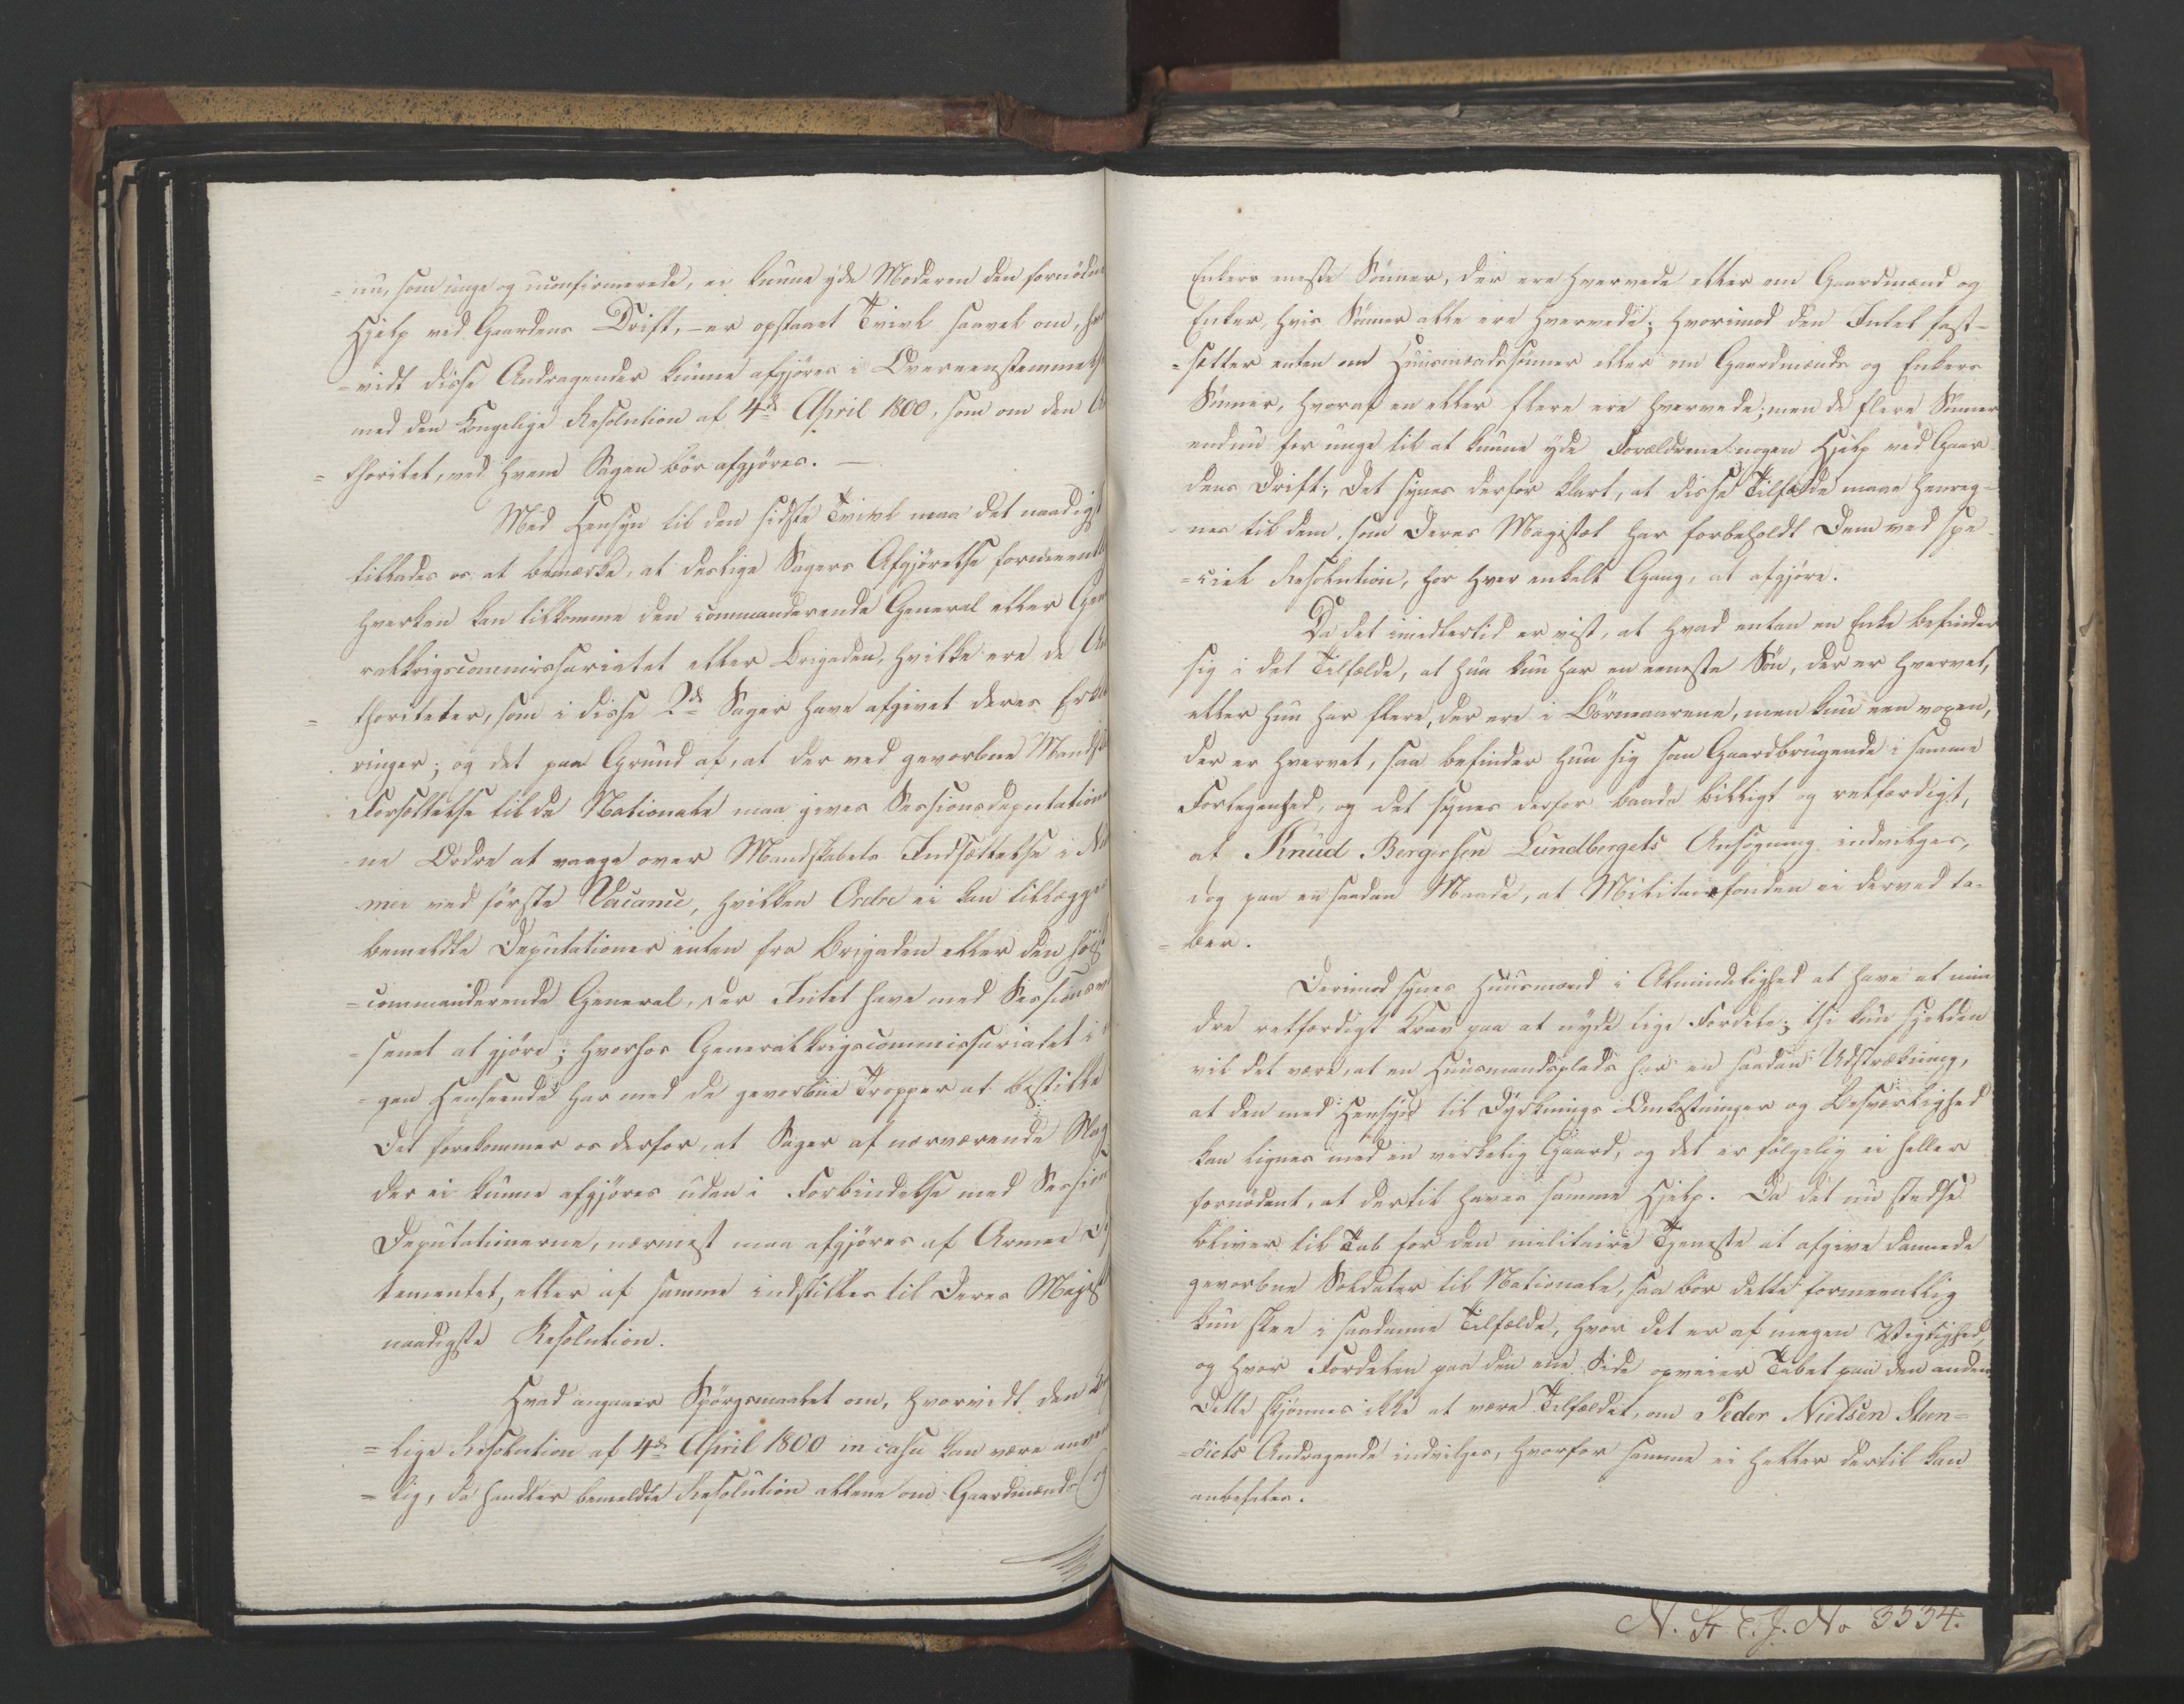 =nu, som unge og uconfirmerede, ei kunne yde Moderen den fornødne
Hjelp ved Gaardens Drift, - er opstaaet Tvivl saavel om, hvor
=vidt disse Andragender kunne afgjøres i Overeenstemmelse
med den Kongelige Resolution af 4de April 1800, som om den Au
=thoritet, ved hvem Sagen bör afgjöres. —
Med Hensyn til den sidste Tvivl maa det naadigst
tillades os at bemærke, at deslige Sagers Afgjörelse formeentlig
hverken kan tilkomme den commanderende General eller Gene
ralkrigscommissariatet eller Brigaden, hvilke ere de Au
=thoriteter, som i disse 2de Sager have afgivet deres Erklæ
ringer; og det paa Grund af, at der ved gevorbne Mandskabs
Forsættelse til de Nationale maa gives Sessionsdeputationer
=ne Ordre at vaage over Mandskabets Indsættelse i Num
mer ved förste Vacance, hvilken Ordre ei kan tillægges
bemeldte Deputationer enten fra Brigaden eller den höist
=commanderende General, der Intet have med Sessionsvæ
=senet at gjöre; hvorhos Generalkrigscommissariatet i
=gen Henseende har med de gevorbne Tropper at bestille
Det forekommer os derfor, at Sager af nærværende Slags
der ei kunne afgjöres uden i Forbindelse med Sessions
Deputationerne, nærmest maa afgjöres af Armee De
tementet, eller af samme indstilles til Deres Majestæts
naadigste Resolution.
Hvad angaaer Spörgsmaalet om, hvorvidt den Konge
=lige Resolution af 4de April 1800 in casu kan være anvende
=lig, da handler bemeldte Resolution allene om Gaardmænds og
Enkers eneste Sönner, der ere hvervede eller om Gaardmænd og
Enker, hvis Sönner alle ere hvervede; hvorimod den Intet fast=
=sætter enten om Huusmændssönner eller om Gaardmænds og Enkers
Sönner, hvoraf en eller flere ere hvervede, men de flere Sönner
endnu for unge til at kunne yde Forældrene nogen Hjelp ved Gaar
dens Drift; Det synes derfor klart, at disse Tilfælde maae henreg=
nes til dem, som Deres Majestæt har forbeholdt Dem ved spe
=ciel Resolution, for hver enkelt Gang, at afgjöre.
Da det imedlertid er vist, at hvad enten en Enke befinder
sig i det Tilfælde, at hun kun har en eeneste Sön, der er hvervet,
eller hun har flere, der ere i Börneaarene, men kun een voxen,
der er hvervet, saa befinder hun sig som Gaardbrugende i samme
Forlegenhed, og det synes derfor baade billigt og retfærdigt,
at Knud Bergersen Lundbergets Ansögning indvilges,
dog paa en saadan Maade, at Militairfonden ei derved ta=
=ber.
Derimod synes Huusmænd i Almindelighed at have et min
dre retfærdigt Krav paa at nyde lige Fordele; thi kun sjelden
vil det være, at en Huusmandsplads har en saadan Udstrækning,
at den med Hensyn til Dyrknings Omkostninger og Besværlighed
kan lignes med en virkelig Gaard, og det er fölgelig ei heller
fornödent, at dertil haves samme Hjelp. Da det nu stedse
bliver til Tab for den militaire Tjeneste at afgive dannede
gevorbne Soldater til Nationale, saa bör dette formeentlig
kun skee i saadanne Tilfælde, hvor det er af megen Vigtighed,
og hvor Fordelen paa den ene Side opveier Tabet paa den anden
Dette skjönnes ikke at være Tilfældet, om Peder Nielsen Steen=
=öiets Andragende indvilges, hvorfor samme ei heller dertil kan
anbefales.
N. St. C. J. No 3534.